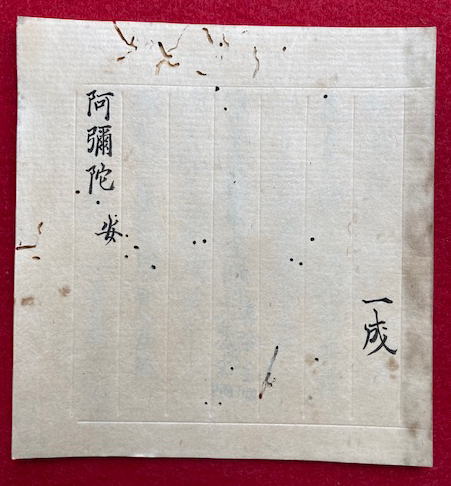 阿彌陀
安
一成